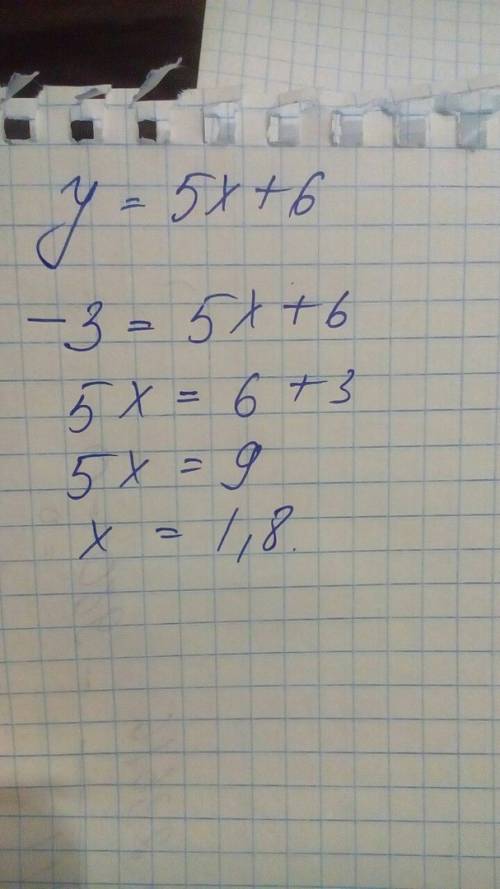 y = 5x + 6
-3 = 5x + 6
5x = 6 + 3
5x = 9
x = 1,8.